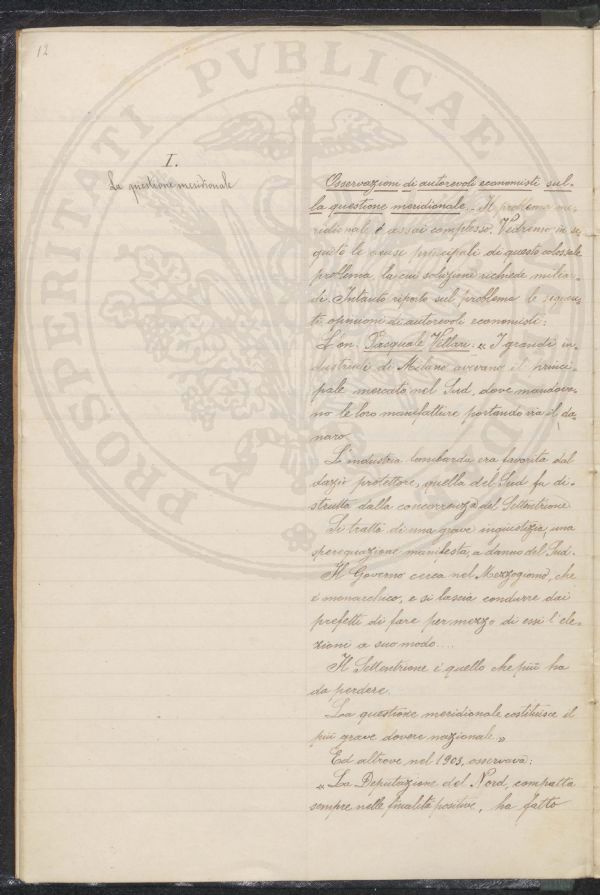 12
I.
La questione meridionale
Osservazioni di autorevoli economisti sul-
la questione meridionale. - Il problema me-
ridionale è assai complesso. Vedremo in se-
guito le cause principali di questo colossale
problema, la cui soluzione richiede miliar-
di. Intanto riporto sul problema le seguen-
ti opinioni di autorevoli economisti:
L'on. Pasquale Villari: « I grandi in-
dustriali di Milano avevano il princi-
pale mercato nel Sud, dove mandava-
no le loro manifatture portando via il da-
naro.
L'industria lombarda era favorita dal
dazio protettore, quella del Sud fu di-
strutta dalla concorrenza del Settentrione
Si tratta di una grave ingiustizia, una
sperequazione manifesta, a danno del Sud.
Il Governo cerca nel Mezzogiorno, che
è monarchico, e si lascia condurre dai
prefetti di fare per mezzo di essi l'ele-
zioni a suo modo....
Il Settentrione è quello che più ha
da perdere.
La questione meridionale costituisce il
più grave dovere nazionale »
Ed altrove nel 1903, osservava:
« La Deputazione del Nord, compatta
sempre nelle finalità positive, ha fatto
PROSPERITATI PVBLICAE